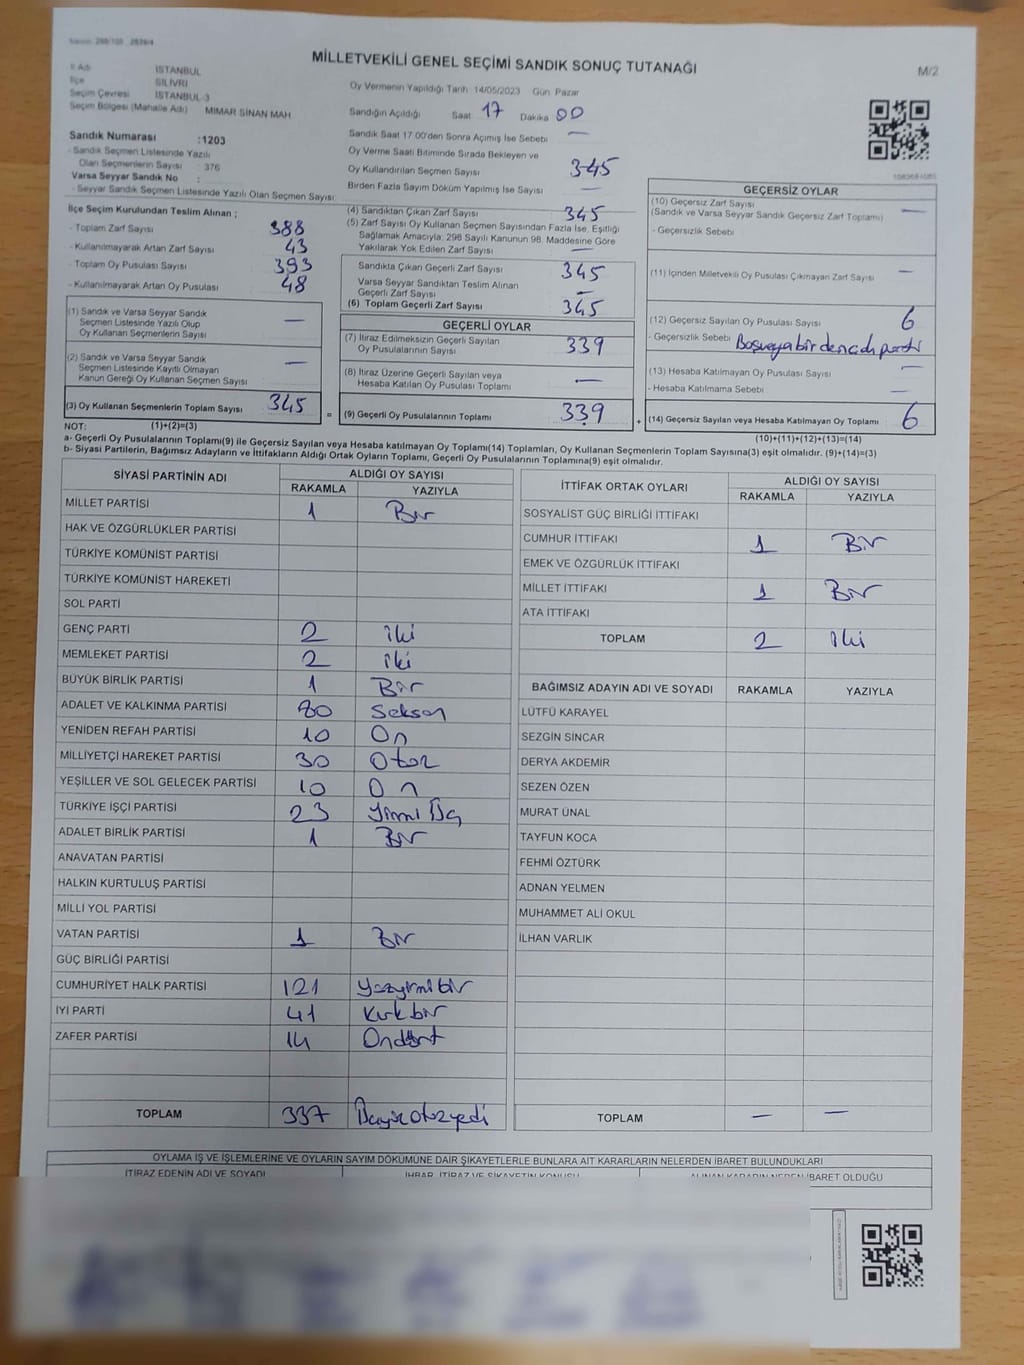 MİLLETVEKİLİ GENEL SEÇİMİ SANDIK SONUÇ TUTANAĞI
M/2
İl Adı İSTANBUL
İlçe SİLİVRİ
Seçim Çevresi İSTANBUL-3
Seçim Bölgesi (Mahalle Adı) MIMAR SİNAN MAH
Sandık Numarası :1203
- Sandık Seçmen Listesinde Yazılı
Olan Seçmenlerin Sayısı : 376
Varsa Seyyar Sandık No :
- Seyyar Sandık Seçmen Listesinde Yazılı Olan Seçmen Sayısı
Oy Vermenin Yapıldığı Tarih 14/05/2023 Gün Pazar
Sandığın Açıldığı Saat 17 Dakika 00
Sandık Saat 17.00'den Sonra Açımış İse Sebebi —
Oy Verme Saati Bitiminde Sırada Bekleyen ve
Oy Kullandırılan Seçmen Sayısı 345
Birden Fazla Sayım Döküm Yapılmış İse Sayısı —
İlçe Seçim Kurulundan Teslim Alınan ;
- Toplam Zarf Sayısı 388
- Kullanılmayarak Artan Zarf Sayısı 43
- Toplam Oy Pusulası Sayısı 393
- Kullanılmayarak Artan Oy Pusulası 48
(1) Sandık ve Varsa Seyyar Sandık
Seçmen Listesinde Yazılı Olup
Oy Kullanan Seçmenlerin Sayısı —
(2) Sandık ve Varsa Seyyar Sandık
Seçmen Listesinde Kayıtlı Olmayan
Kanun Gereği Oy Kullanan Seçmen Sayısı —
(3) Oy Kullanan Seçmenlerin Toplam Sayısı 345
(4) Sandıktan Çıkan Zarf Sayısı 345
(5) Zarf Sayısı Oy Kullanan Seçmen Sayısından Fazla İse, Eşitliği
Sağlamak Amacıyla; 298 Sayılı Kanunun 98. Maddesine Göre
Yakılarak Yok Edilen Zarf Sayısı —
Sandıkta Çıkan Geçerli Zarf Sayısı 345
Varsa Seyyar Sandıktan Teslim Alınan
Geçerli Zarf Sayısı —
(6) Toplam Geçerli Zarf Sayısı 345
GEÇERLİ OYLAR
(7) İtiraz Edilmeksizin Geçerli Sayılan
Oy Pusulalarının Sayısı 339
(8) İtiraz Üzerine Geçerli Sayılan veya
Hesaba Katılan Oy Pusulası Toplamı —
= (9) Geçerli Oy Pusulalarının Toplamı 339
GEÇERSİZ OYLAR
(10) Geçersiz Zarf Sayısı —
(Sandık ve Varsa Seyyar Sandık Geçersiz Zarf Toplamı)
- Geçersizlik Sebebi
(11) İçinden Milletvekili Oy Pusulası Çıkmayan Zarf Sayısı —
(12) Geçersiz Sayılan Oy Pusulası Sayısı 6
- Geçersizlik Sebebi Boş veya birden çok parti
(13) Hesaba Katılmayan Oy Pusulası Sayısı —
- Hesaba Katılmama Sebebi —
+ (14) Geçersiz Sayılan veya Hesaba Katılmayan Oy Toplamı 6
NOT: (1)+(2)=(3) (10)+(11)+(12)+(13)=(14)
a- Geçerli Oy Pusulalarının Toplamı(9) ile Geçersiz Sayılan veya Hesaba katılmayan Oy Toplamı(14) Toplamları, Oy Kullanan Seçmenlerin Toplam Sayısına(3) eşit olmalıdır. (9)+(14)=(3)
b- Siyasi Partilerin, Bağımsız Adayların ve İttifakların Aldığı Ortak Oyların Toplamı, Geçerli Oy Pusulalarının Toplamına(9) eşit olmalıdır.
SİYASİ PARTİNİN ADI ALDIĞI OY SAYISI
RAKAMLA YAZIYLA
MİLLET PARTİSİ 1 Bir
HAK VE ÖZGÜRLÜKLER PARTİSİ
TÜRKİYE KOMÜNİST PARTİSİ
TÜRKİYE KOMÜNİST HAREKETİ
SOL PARTİ
GENÇ PARTİ 2 iki
MEMLEKET PARTİSİ 2 iki
BÜYÜK BİRLİK PARTİSİ 1 Bir
ADALET VE KALKINMA PARTİSİ 80 Seksen
YENİDEN REFAH PARTİSİ 10 On
MİLLİYETÇİ HAREKET PARTİSİ 30 Otuz
YEŞİLLER VE SOL GELECEK PARTİSİ 10 On
TÜRKİYE İŞÇİ PARTİSİ 23 Yirmi Üç
ADALET BİRLİK PARTİSİ 1 Bir
ANAVATAN PARTİSİ
HALKIN KURTULUŞ PARTİSİ
MİLLİ YOL PARTİSİ
VATAN PARTİSİ 1 Bir
GÜÇ BİRLİĞİ PARTİSİ
CUMHURİYET HALK PARTİSİ 121 Yüzyirmibir
İYİ PARTİ 41 Kırkbir
ZAFER PARTİSİ 14 Ondört
TOPLAM 337 Üçyüzotuzyedi
İTTİFAK ORTAK OYLARI ALDIĞI OY SAYISI
RAKAMLA YAZIYLA
SOSYALİST GÜÇ BİRLİĞİ İTTİFAKI
CUMHUR İTTİFAKI 1 Bir
EMEK VE ÖZGÜRLÜK İTTİFAKI
MİLLET İTTİFAKI 1 Bir
ATA İTTİFAKI
TOPLAM 2 iki
BAĞIMSIZ ADAYIN ADI VE SOYADI RAKAMLA YAZIYLA
LÜTFÜ KARAYEL
SEZGİN SİNCAR
DERYA AKDEMİR
SEZEN ÖZEN
MURAT ÜNAL
TAYFUN KOCA
FEHMİ ÖZTÜRK
ADNAN YELMEN
MUHAMMET ALİ OKUL
İLHAN VARLIK
TOPLAM — —
OYLAMA İŞ VE İŞLEMLERİNE VE OYLARIN SAYIM DÖKÜMÜNE DAİR ŞİKAYETLERLE BUNLARA AİT KARARLARIN NELERDEN İBARET BULUNDUKLARI
İTİRAZ EDENİN ADI VE SOYADI İHBAR, İTİRAZ VE ŞİKAYETİN KONUSU ALINAN KARARIN NEDEN İBARET OLDUĞU